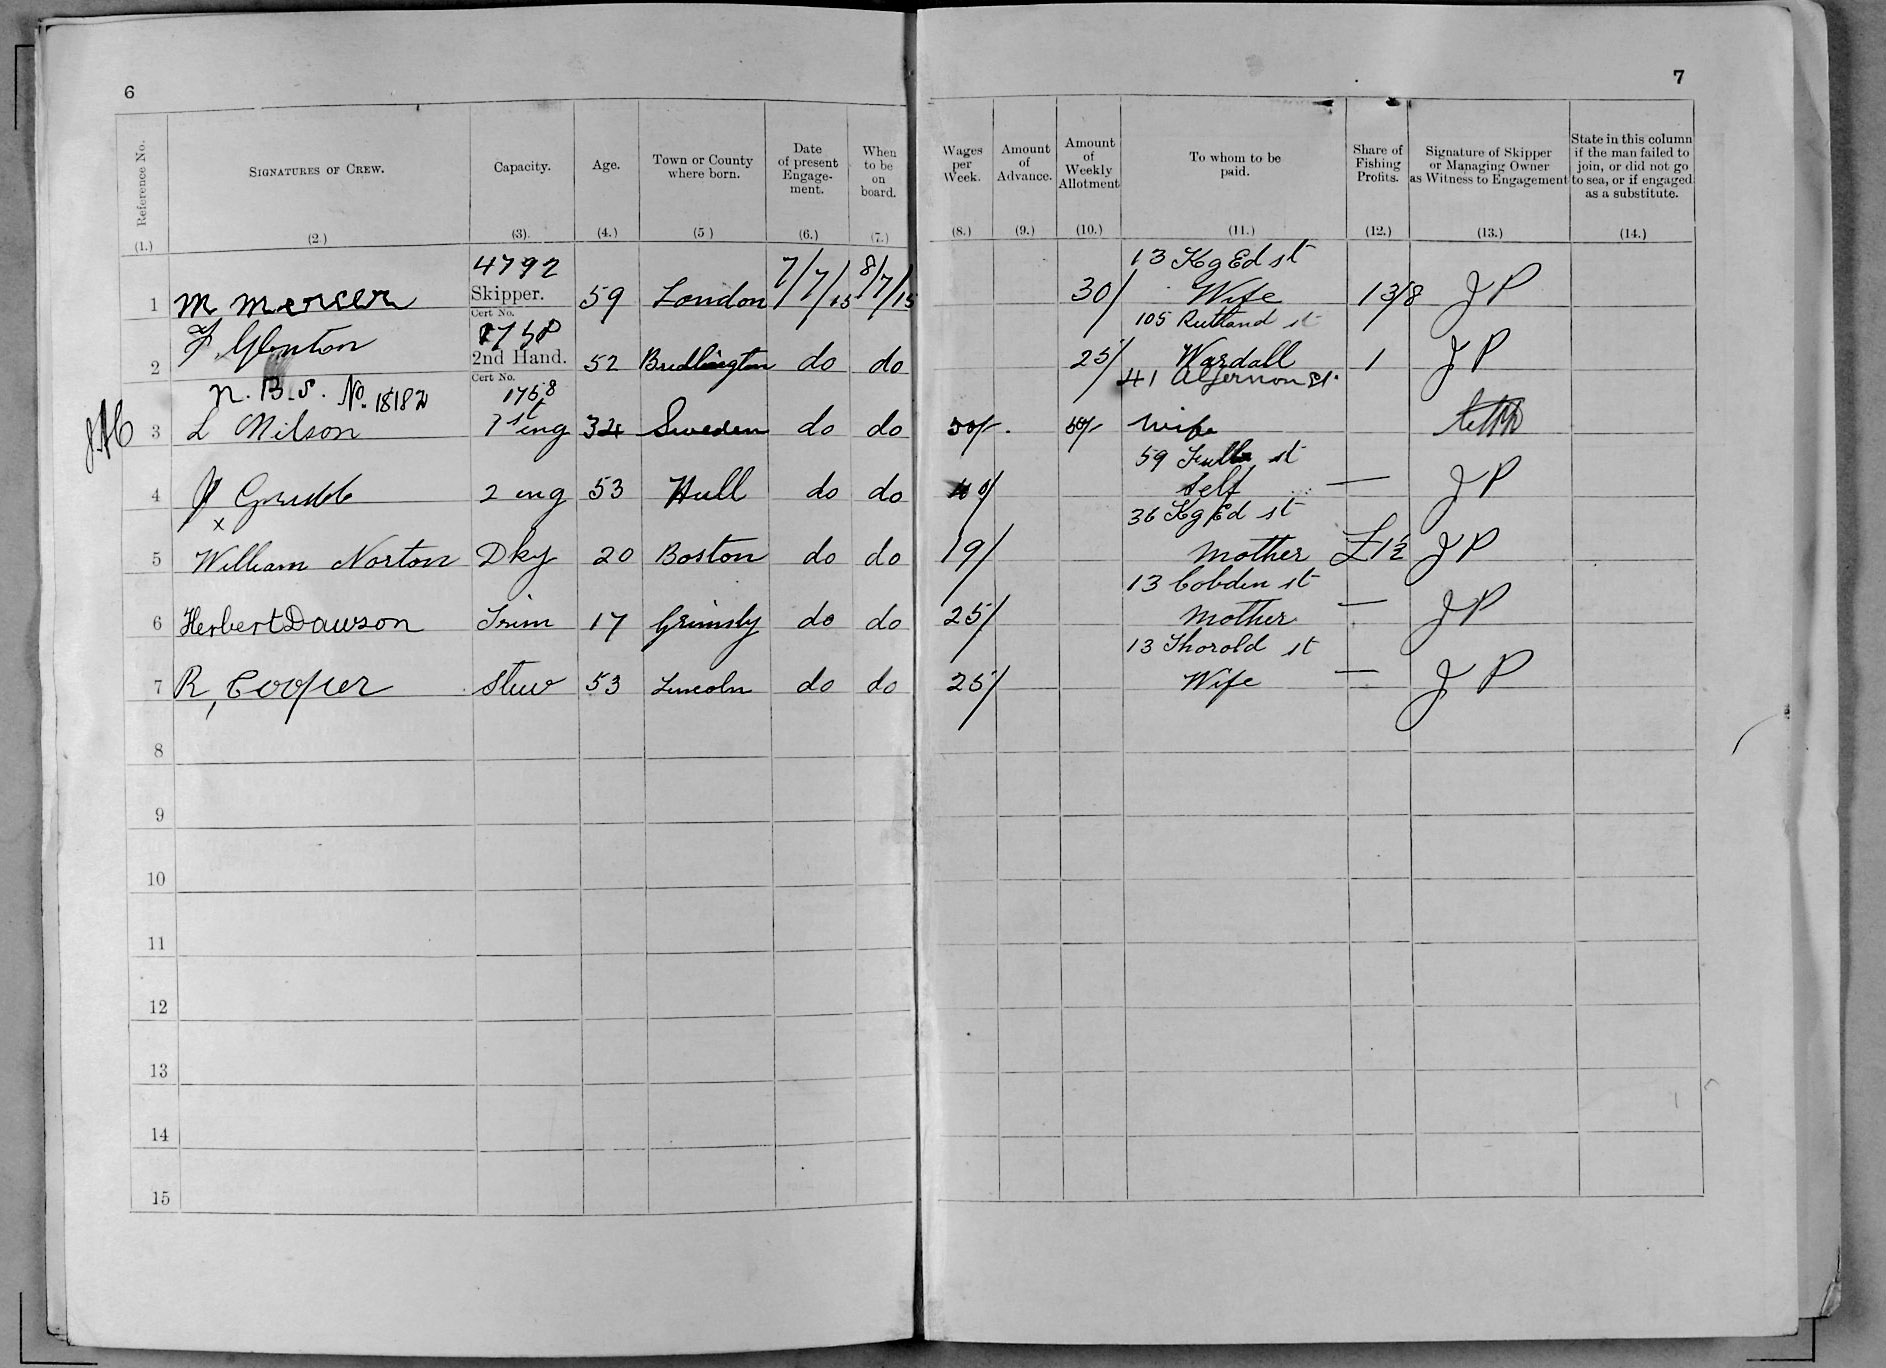 6
7
Reference No. (1.)
SIGNATURES OF CREW. (2.)
Capacity. (3).
Age. (4.)
Town or County where born. (5)
Date of present Engage-ment. (6.)
When to be on board. (7.)
Wages per Week. (8.)
Amount of Advance. (9.)
Amount of Weekly Allotment (10.)
To whom to be paid. (11.)
Share of Fishing Profits. (12.)
Signature of Skipper or Managing Owner as Witness to Engagement (13.)
State in this column if the man failed to join, or did not go to sea, or if engaged as a substitute. (14.)
4792 13 Kg Ed st
1 M Mercer Skipper. 59 London 7/7/15 8/7/15 30/ Wife 13/8 J P
Cert No. 105 Rutland st
2 F Glenton 2nd Hand. 52 Bridlington do do 25/ Wardall 1 J P
Cert No. 41 Algernon St.
N.B.S. No. 18182 1758
3 L Nilson 1st eng 34 Sweden do do 50/- 50/- Wife
59 st
4 Grubb 2 eng 53 Hull do do Self — J P
x 36 Kg Ed st
5 William Norton Dky 20 Boston do do 19/ Mother £1½ J P
13 Cobden st
6 Herbert Dawson Trim 17 Grimsby do do 25/ Mother — J P
13 Thorold st
7 R, Cooper Stew 53 Lincoln do do 25/ Wife — J P
8
9
10
11
12
13
14
15